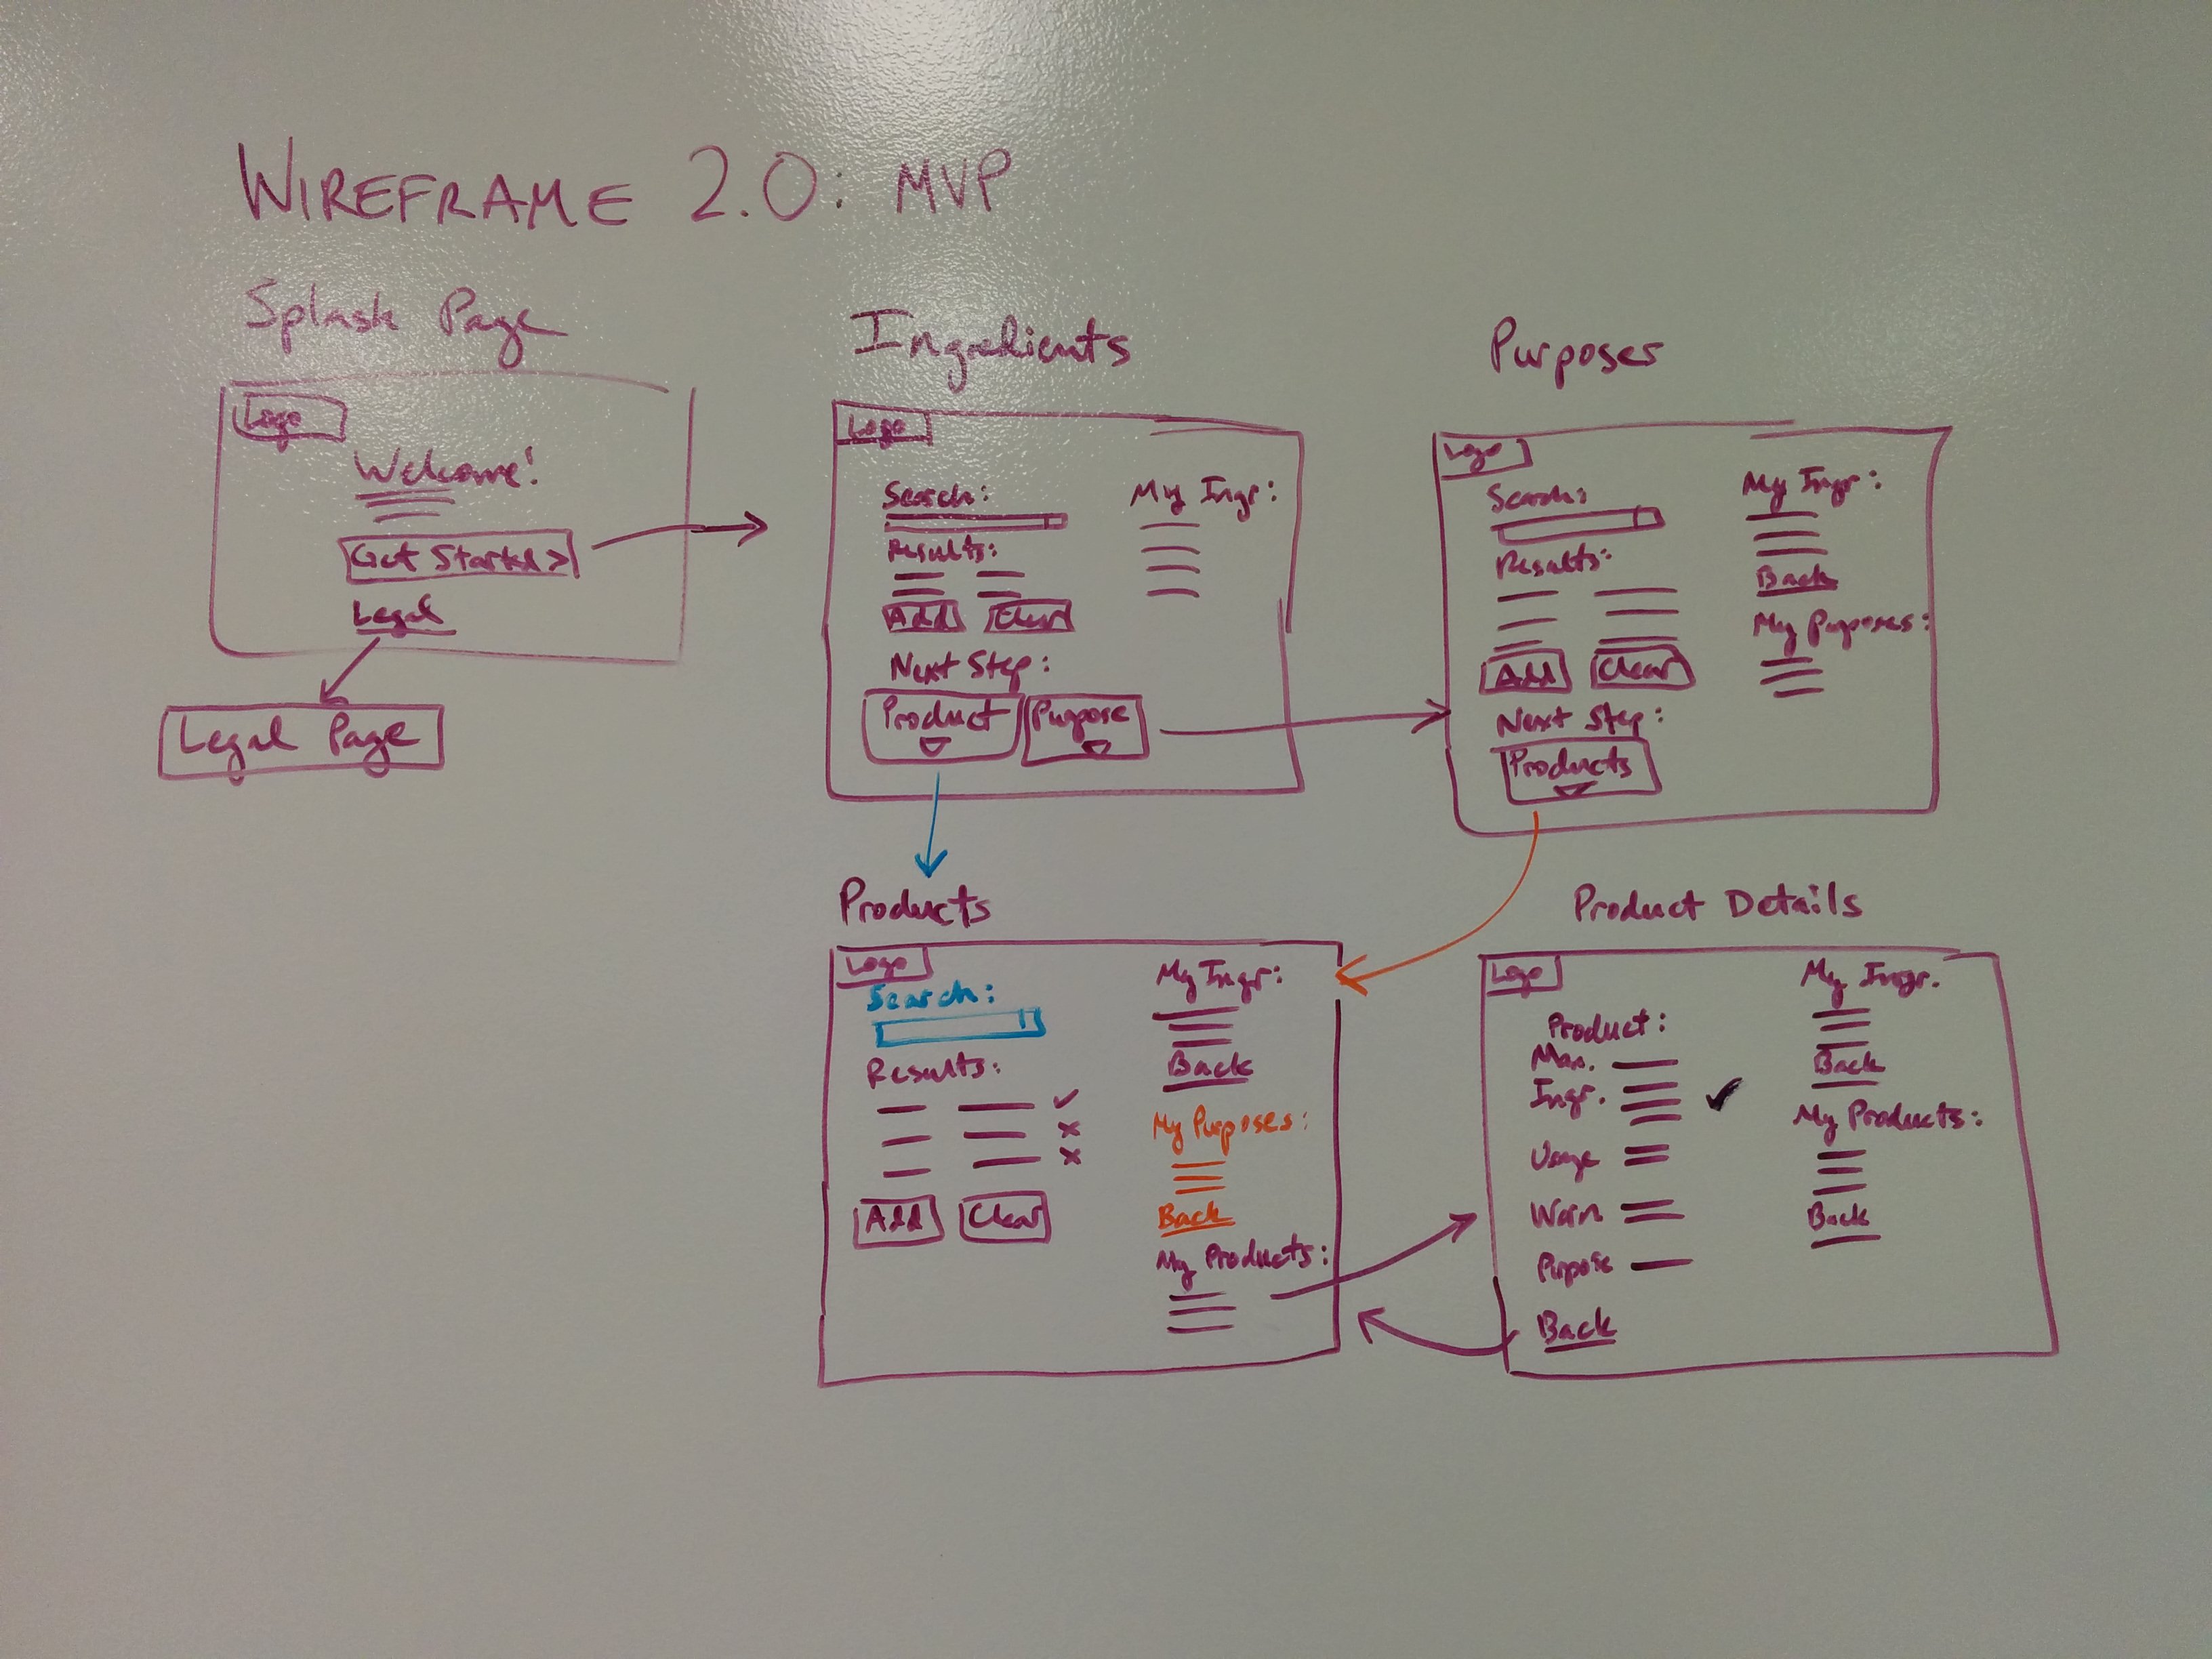 WIREFRAME 2.0: MVP
Splash Page
Logo
Welcome!
Get Started >
Legal
Legal Page
Ingredients
Logo
Search:
Results:
Add Clear
Next Step:
Product Purpose
My Ingr:
Purposes
Logo
Search:
Results:
Add Clear
Next Step:
Products
My Ingr:
Back
My Purposes:
Products
Logo
Search:
Results:
Add Clear
My Ingr:
Back
My Purposes:
Back
My Products:
Product Details
Logo
Product:
Man.
Ingr.
Usage
Warn
Purpose
Back
My Ingr.
Back
My Products:
Back